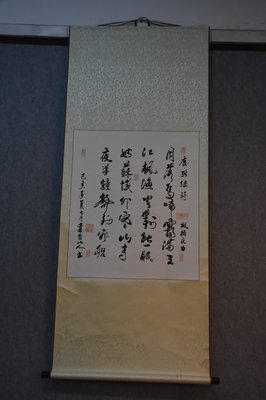 唐張继诗
楓橋夜泊
月落烏啼霜满天
江楓渔火對愁眠
姑蘇城外寒山寺
夜半鐘聲到客船